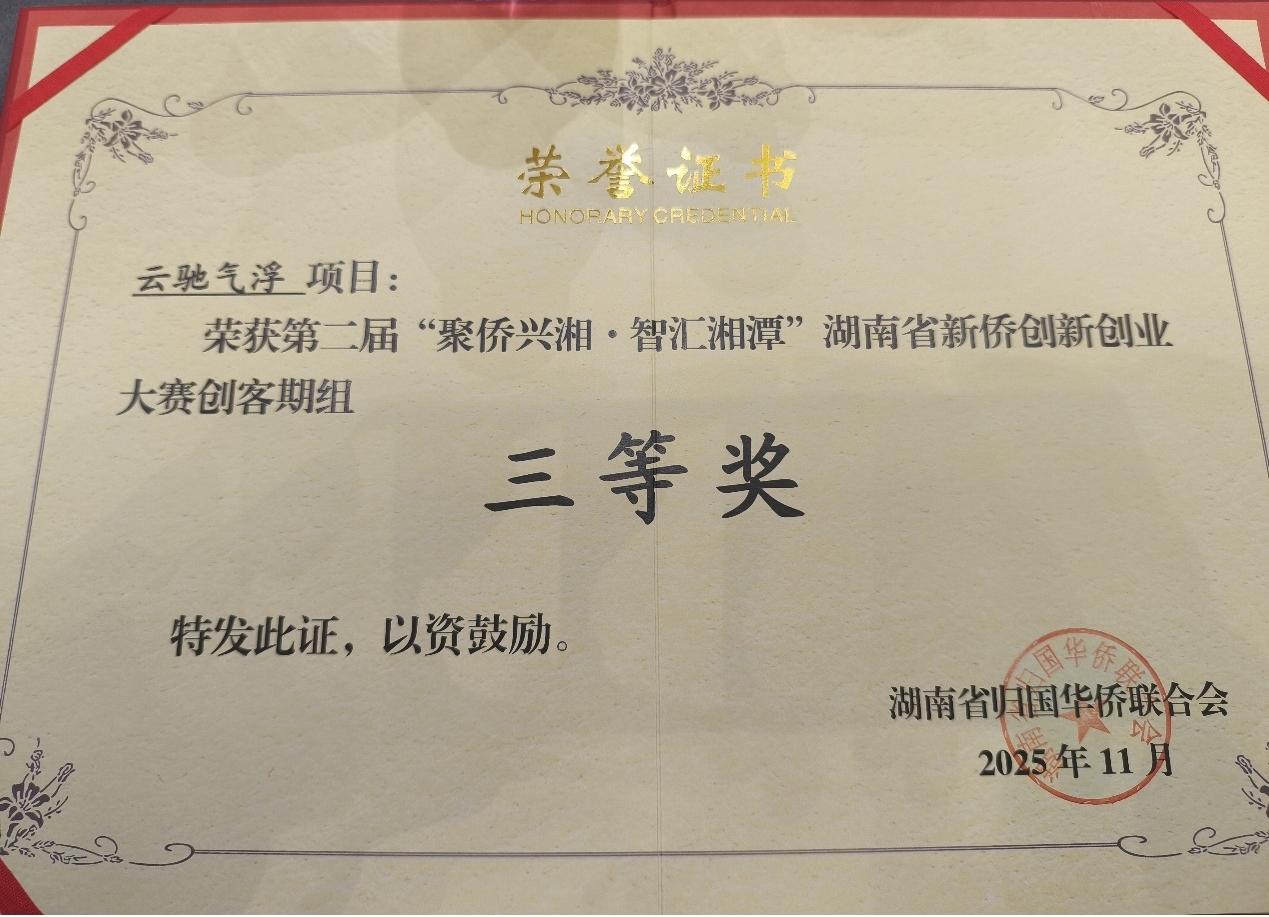 荣誉证书
HONORARY CREDENTIAL
云驰气浮 项目：
荣获第二届“聚侨兴湘·智汇湘潭”湖南省新侨创新创业
大赛创客期组
三等奖
特发此证，以资鼓励。
湖南省归国华侨联合会
2025年11月
湖南省归国华侨联合会